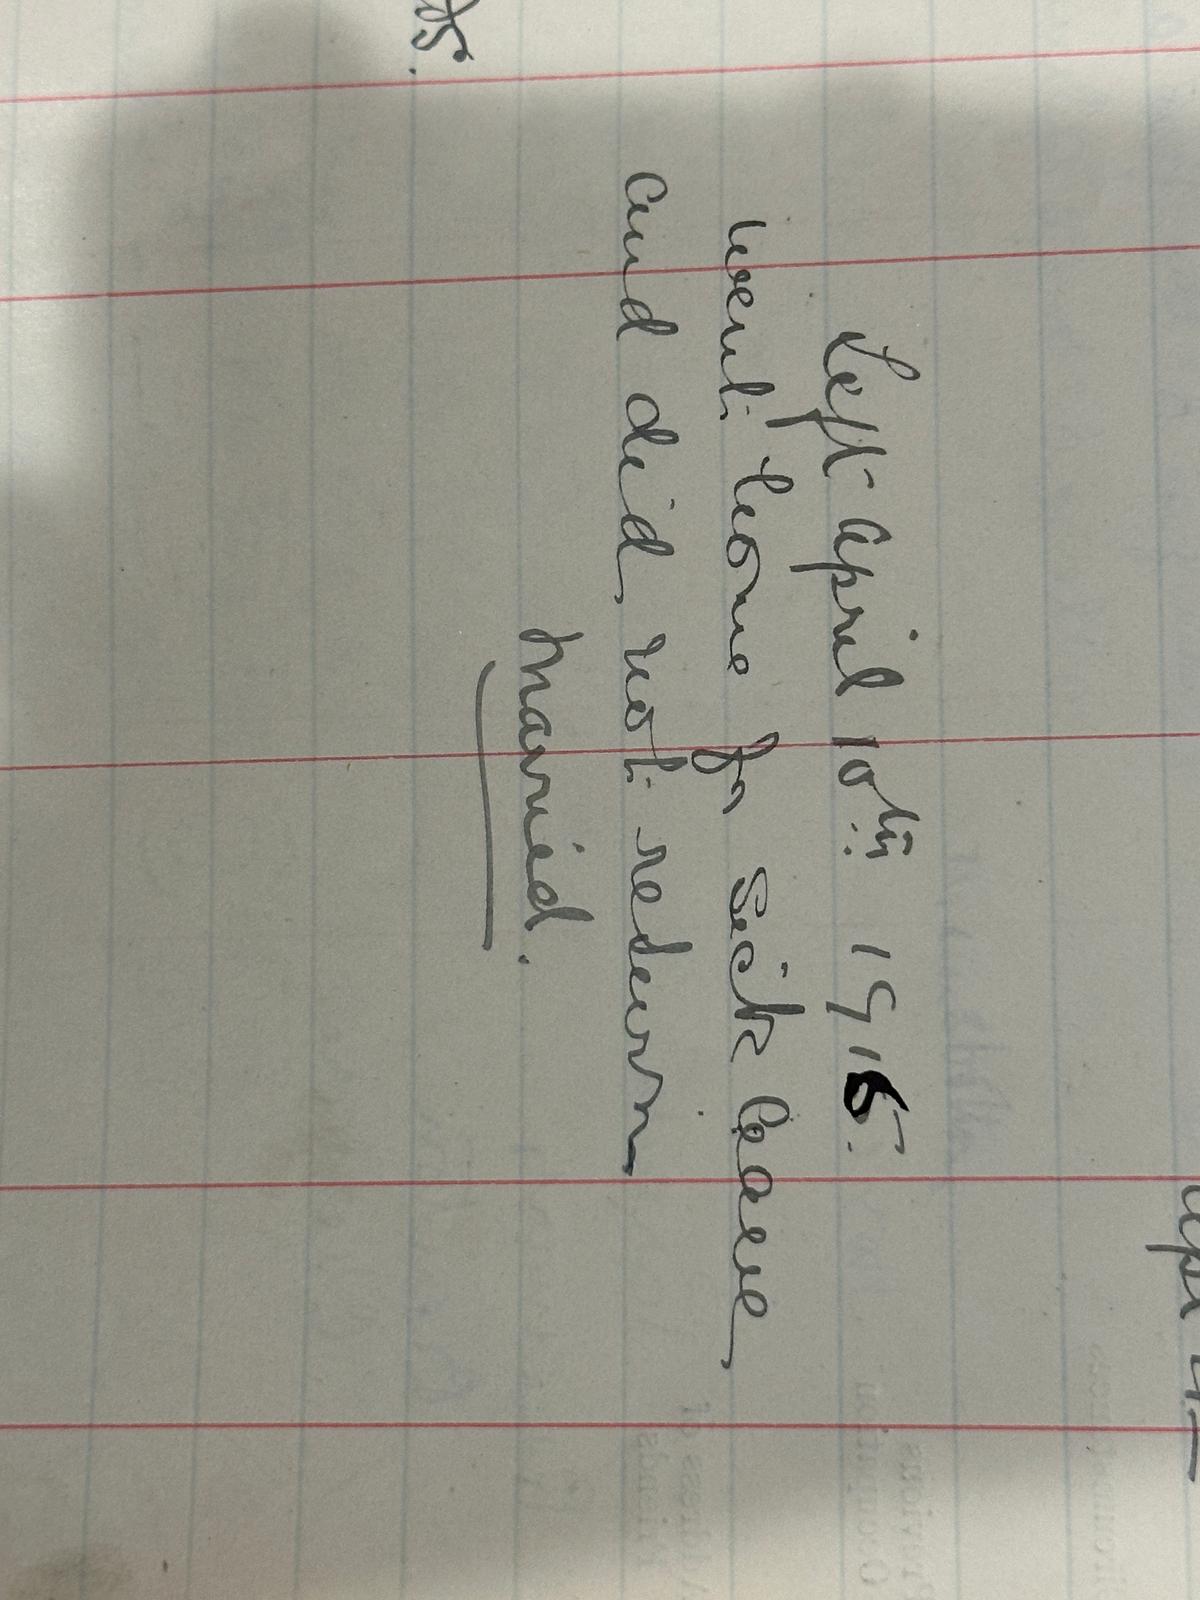 Left April 10th 1915.
went home for sick leave
and did not return
Married.